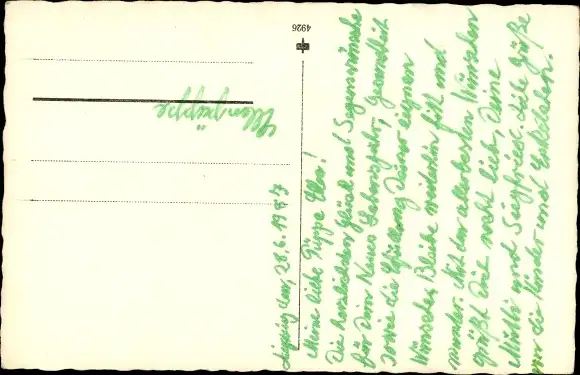 Leipzig den, 28.6.1957
Meine liebe Püppe Ellen!
Die herzlichsten Glück und Segenswünsche
für Dein Neues Lebensjahr, Gesundheit
sowie die Erfüllung Deiner eigenen
Wünsche. Bleibe weiterhin fit und
munter. Mit den allerbesten Wünschen
grüßt Dich recht lieb, Deine
Mutti und Siegfried. Liebe Grüße
an die Kinder und Enkelchen.
Ellenpüppe
4926